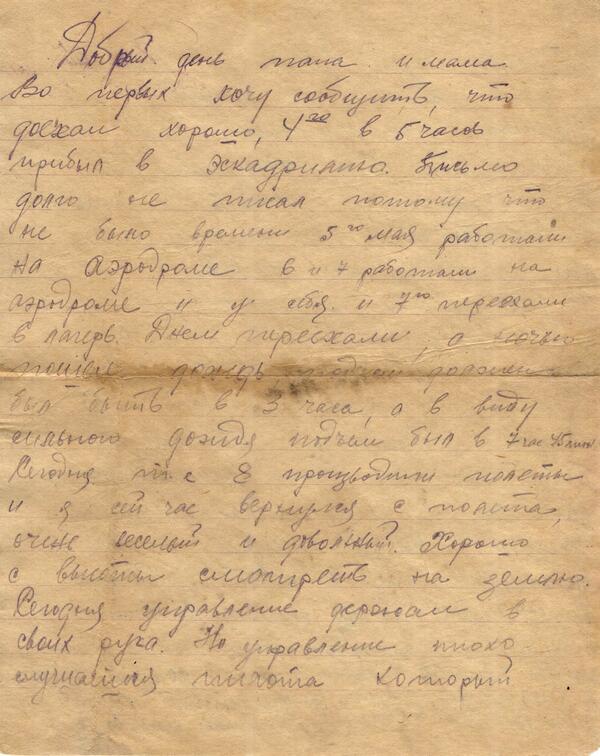 Добрый день папа и мама
Во первых хочу сообщить, что
доехал хорошо, 4го в 5 часов
прибыл в эскадрилью. Письмо
долго не писал потому что
не было времени 5го мая работали
на аэродроме 6 и 7 работали на
аэродроме и у себя. и 7го переехали
в лагерь. Днем переехали, а ночью
пошел дождь, подъем должен
был быть в 3 часа, а в виду
сильного дождя подъем был в 7 час 45 мин
Сегодня т.е 8 производили полеты
и я сей час вернулся с полета,
очень веселый и довольный. Хорошо
с высоты смотреть на землю.
Сегодня управление держал в
своих рука. Но управление плохо
слушается пилота который